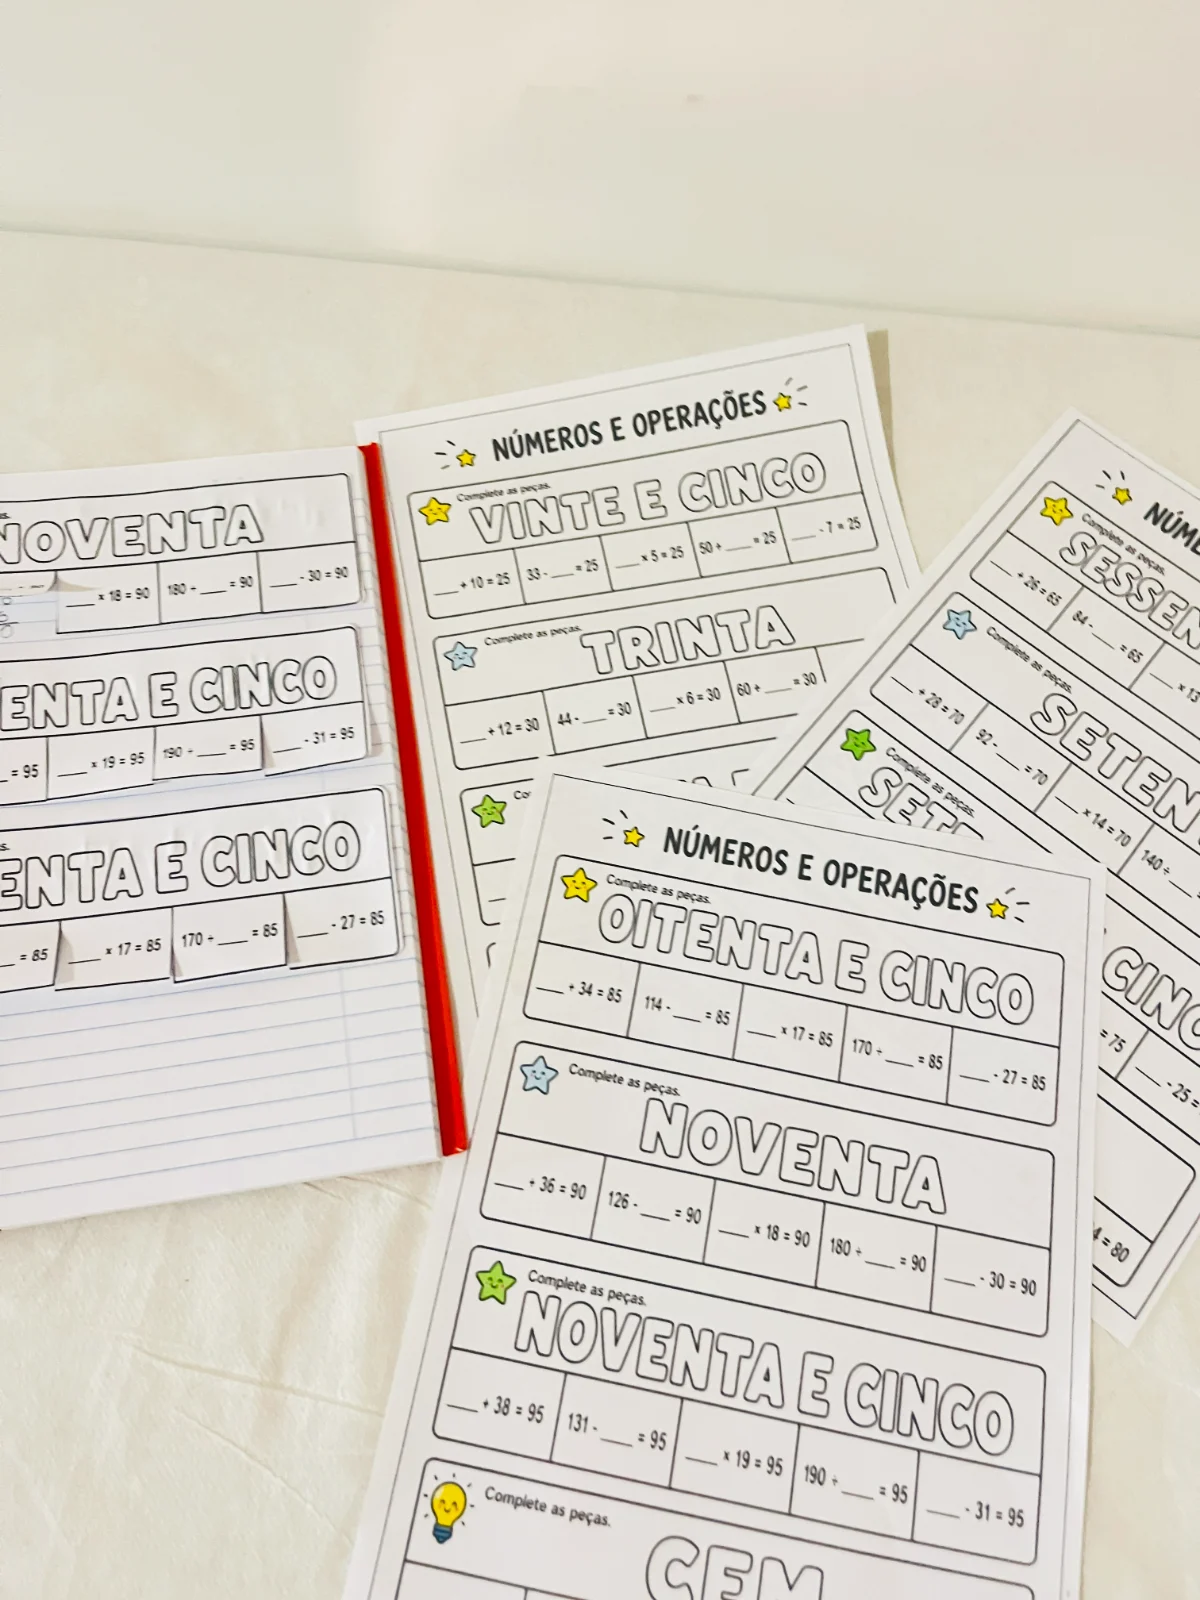 NOVENTA
× 18 = 90 180 ÷ ___ = 90 ___ - 30 = 90
ENTA E CINCO
= 95 ___ × 19 = 95 190 ÷ ___ = 95 ___ - 31 = 95
ENTA E CINCO
= 85 ___ × 17 = 85 170 ÷ ___ = 85 ___ - 27 = 85
NÚMEROS E OPERAÇÕES
Complete as peças.
VINTE E CINCO
___ + 10 = 25 33 - ___ = 25 ___ × 5 = 25 50 ÷ ___ = 25 ___ - 7 = 25
Complete as peças.
TRINTA
___ + 12 = 30 44 - ___ = 30 ___ × 6 = 30 60 ÷ ___ = 30
Co
NÚME
Complete as peças.
SESSEN
___ + 26 = 65 84 - ___ = 65 ___ × 13
Complete as peças.
SETEN
___ + 28 = 70 92 - ___ = 70 ___ × 14 = 70 140 ÷ ___
Complete as peças.
SETE
CINC
= 75 ___ - 25 =
4 = 80
NÚMEROS E OPERAÇÕES
Complete as peças.
OITENTA E CINCO
___ + 34 = 85 114 - ___ = 85 ___ × 17 = 85 170 ÷ ___ = 85 ___ - 27 = 85
Complete as peças.
NOVENTA
___ + 36 = 90 126 - ___ = 90 ___ × 18 = 90 180 ÷ ___ = 90 ___ - 30 = 90
Complete as peças.
NOVENTA E CINCO
___ + 38 = 95 131 - ___ = 95 ___ × 19 = 95 190 ÷ ___ = 95 ___ - 31 = 95
Complete as peças.
CEM